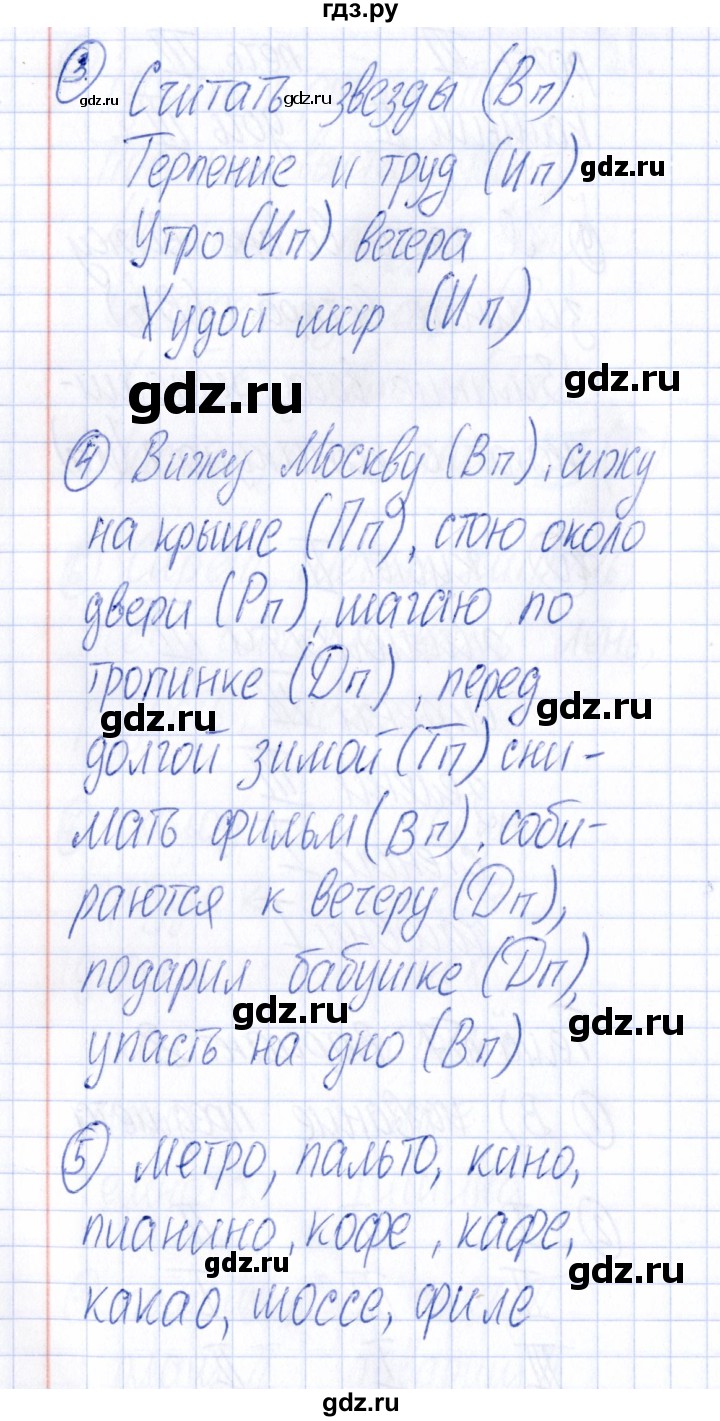 гдз.ру
3. Считать звезды (Вп)
gdz.ru gdz.ru
Терпение и труд (Ип)
gdz.ru
Утро (Ип) вечера
Худой мир (Ип)
gdz.ru gdz.ru
4 Вижу Москву (Вп), сижу
на крыше (Пп), стою около
двери (Рп), шагаю по
тропинке (Дп), перед
gdz.ru gdz.ru
долгой зимой (Тп) сни-
мать фильм (Вп), соби-
раются к вечеру (Дп),
подарил бабушке (Дп),
gdz.ru gdz.ru
упасть на дно (Вп)
5 метро, пальто, кино,
пианино, кофе, кафе,
gdz.ru gdz.ru
какао, шоссе, филе
gdz.ru